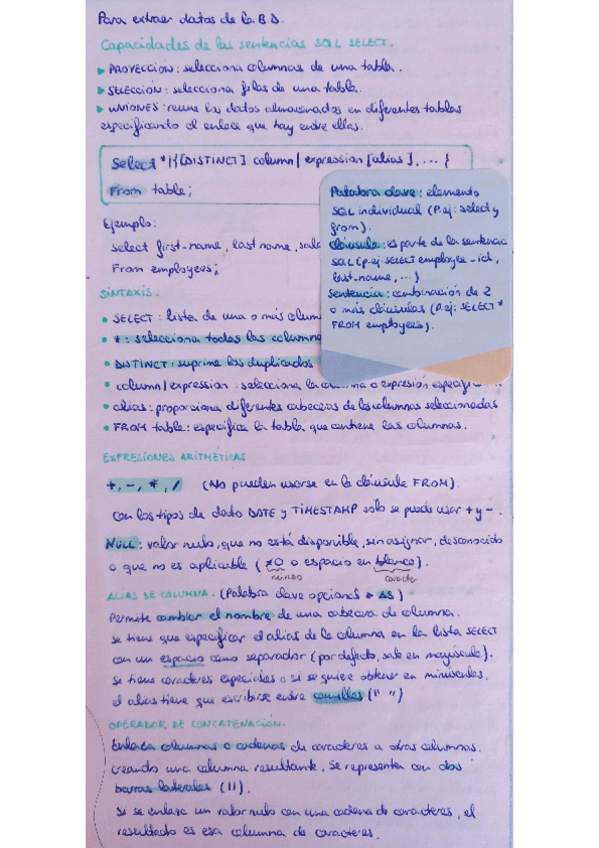 Para extraer datos de la B.D.
Capacidades de las sentencias SQL SELECT.
▸ PROYECCIÓN: selecciona columnas de una tabla.
▸ SELECCIÓN: selecciona filas de una tabla.
▸ UNIONES: reune los datos almacenados en diferentes tablas
especificando el enlace que hay entre ellas.
Select *|{[DISTINCT] column| expression [alias], ... }
From table;
Ejemplo:
Select first-name, last name, sala
From employees;
Palabra clave: elemento
SQL individual (P.ej: select y
from).
Cláusula: es parte de la sentencia
SQL (p.ej: SELECT employee-id,
last-name, ...)
Sentencia: combinación de 2
o más cláusulas (P.ej: SELECT *
FROM employees).
SINTAXIS.
• SELECT: lista de una o más colum
• *: selecciona todas las columna
• DISTINCT: suprime los duplicados
• column|expression: selecciona la columna o expresión especific
• alias: proporciona diferentes cabeceras de las columnas seleccionadas
• FROM table: especifica la tabla que contiene las columnas.
EXPRESIONES ARITMÉTICAS
+, -, *, / (No pueden usarse en la cláusula FROM).
Con los tipos de dato DATE y TIMESTAMP solo se puede usar + y -.
NULL: valor nulo, que no está disponible, sin asignar, desconocido
o que no es aplicable (≠0 o espacio en blanco).
número caracter
ALIAS DE COLUMNA. (Palabra clave opcional AS)
Permite cambiar el nombre de una cabecera de columna.
Se tiene que especificar el alias de la columna en la lista SELECT
con un espacio como separador (por defecto, sale en mayúscula).
Si tiene caracteres especiales o si se quiere obtener en minúsculas,
el alias tiene que escribirse entre comillas (" ")
OPERADOR DE CONCATENACIÓN.
Enlaza columnas o cadenas de caracteres a otras columnas.
Creando una columna resultante. Se representa con dos
barras laterales (||).
Si se enlaza un valor nulo con una cadena de caracteres, el
resultado es esa columna de caracteres.